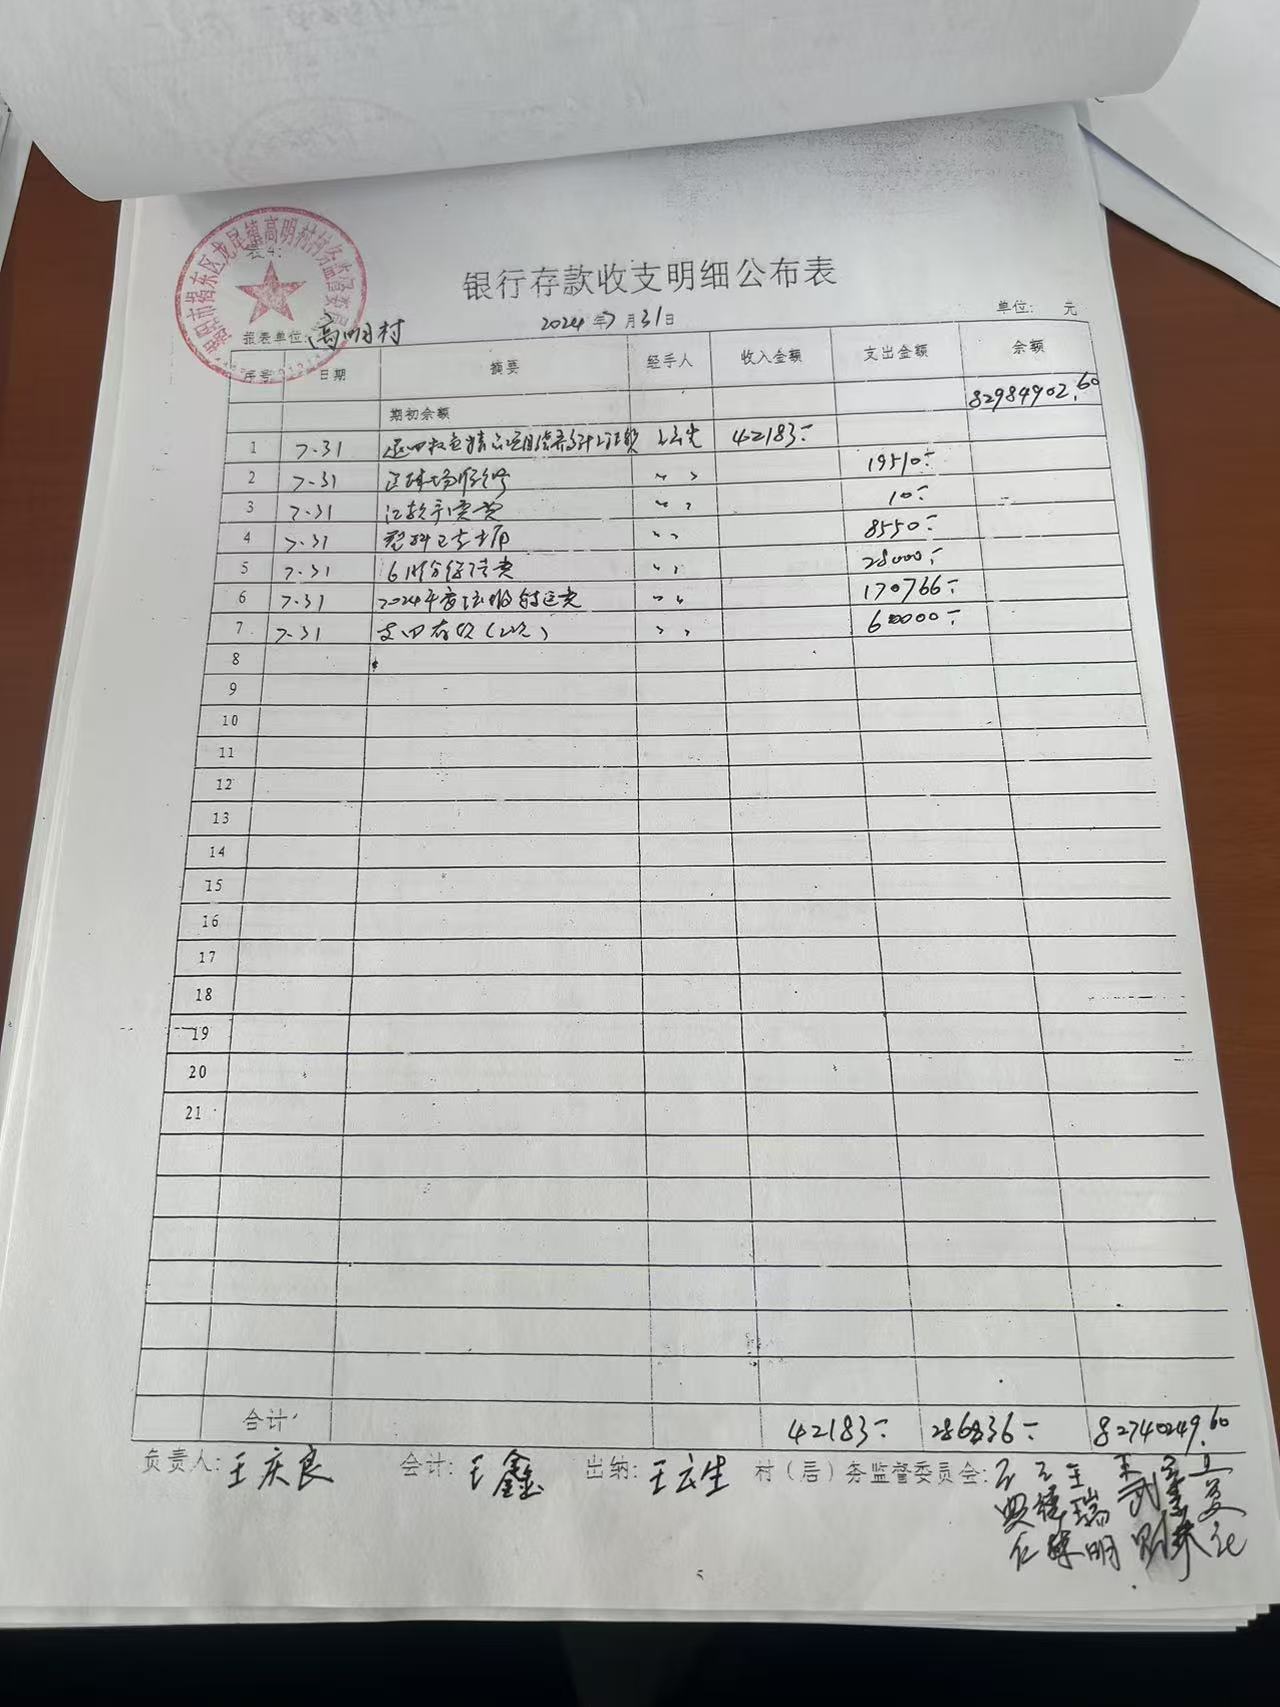 揭阳市揭东区龙尾镇高明村村务监督委员会
表4:
银行存款收支明细公布表
报表单位: 高明村 2024年7月31日 单位: 元
序号 日期 摘要 经手人 收入金额 支出金额 余额
期初余额 82984902.60
1 7.31 42183-
2 7.31 〃 19510-
3 7.31 汇款手续费 〃 10-
4 7.31 〃 8550-
5 7.31 6月份 费 〃 28000-
6 7.31 2024年 费 〃 170766-
7 7.31 〃 60000-
8
9
10
11
12
13
14
15
16
17
18
19
20
21
合计 42183- 286836- 82740249.60
负责人: 王庆良 会计: 王鑫 出纳: 王云生 村(居)务监督委员会:
5